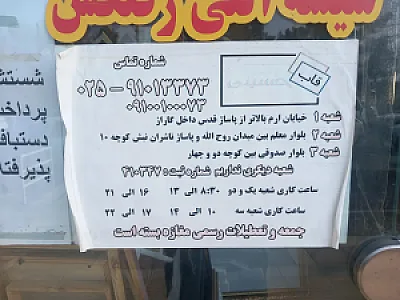 شماره تماس
۰۲۵ - ۹۱۰۱۳۳۷۳
۰۹۱۰۰۱۰۰۰۷۳
قاب
شعبه ۱ خیابان ارم بالاتر از پاساژ قدس داخل گاراژ
شعبه ۲ بلوار معلم بین میدان روح الله و پاساژ ناشران نبش کوچه ۱۰
شعبه ۳ بلوار صدوقی بین کوچه دو و چهار
شعبه دیگری نداریم شماره ثبت : ۴۱۰۳۴۷
ساعت کاری شعبه یک و دو ۸:۳۰ الی ۱۳ ۱۶ الی ۲۱
ساعت کاری شعبه سه ۱۰ الی ۱۴ ۱۷ الی ۲۲
جمعه و تعطیلات رسمی مغازه بسته است